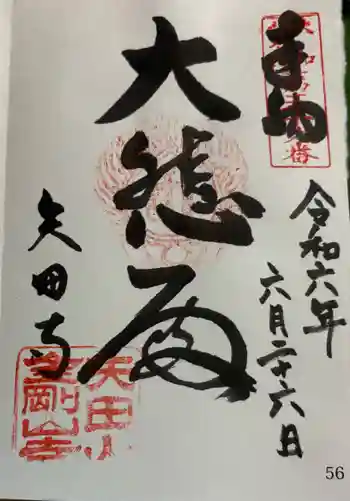 奉拝
令和六年
六月二十六日
大悲殿
矢田寺
矢田山
金剛山寺
56